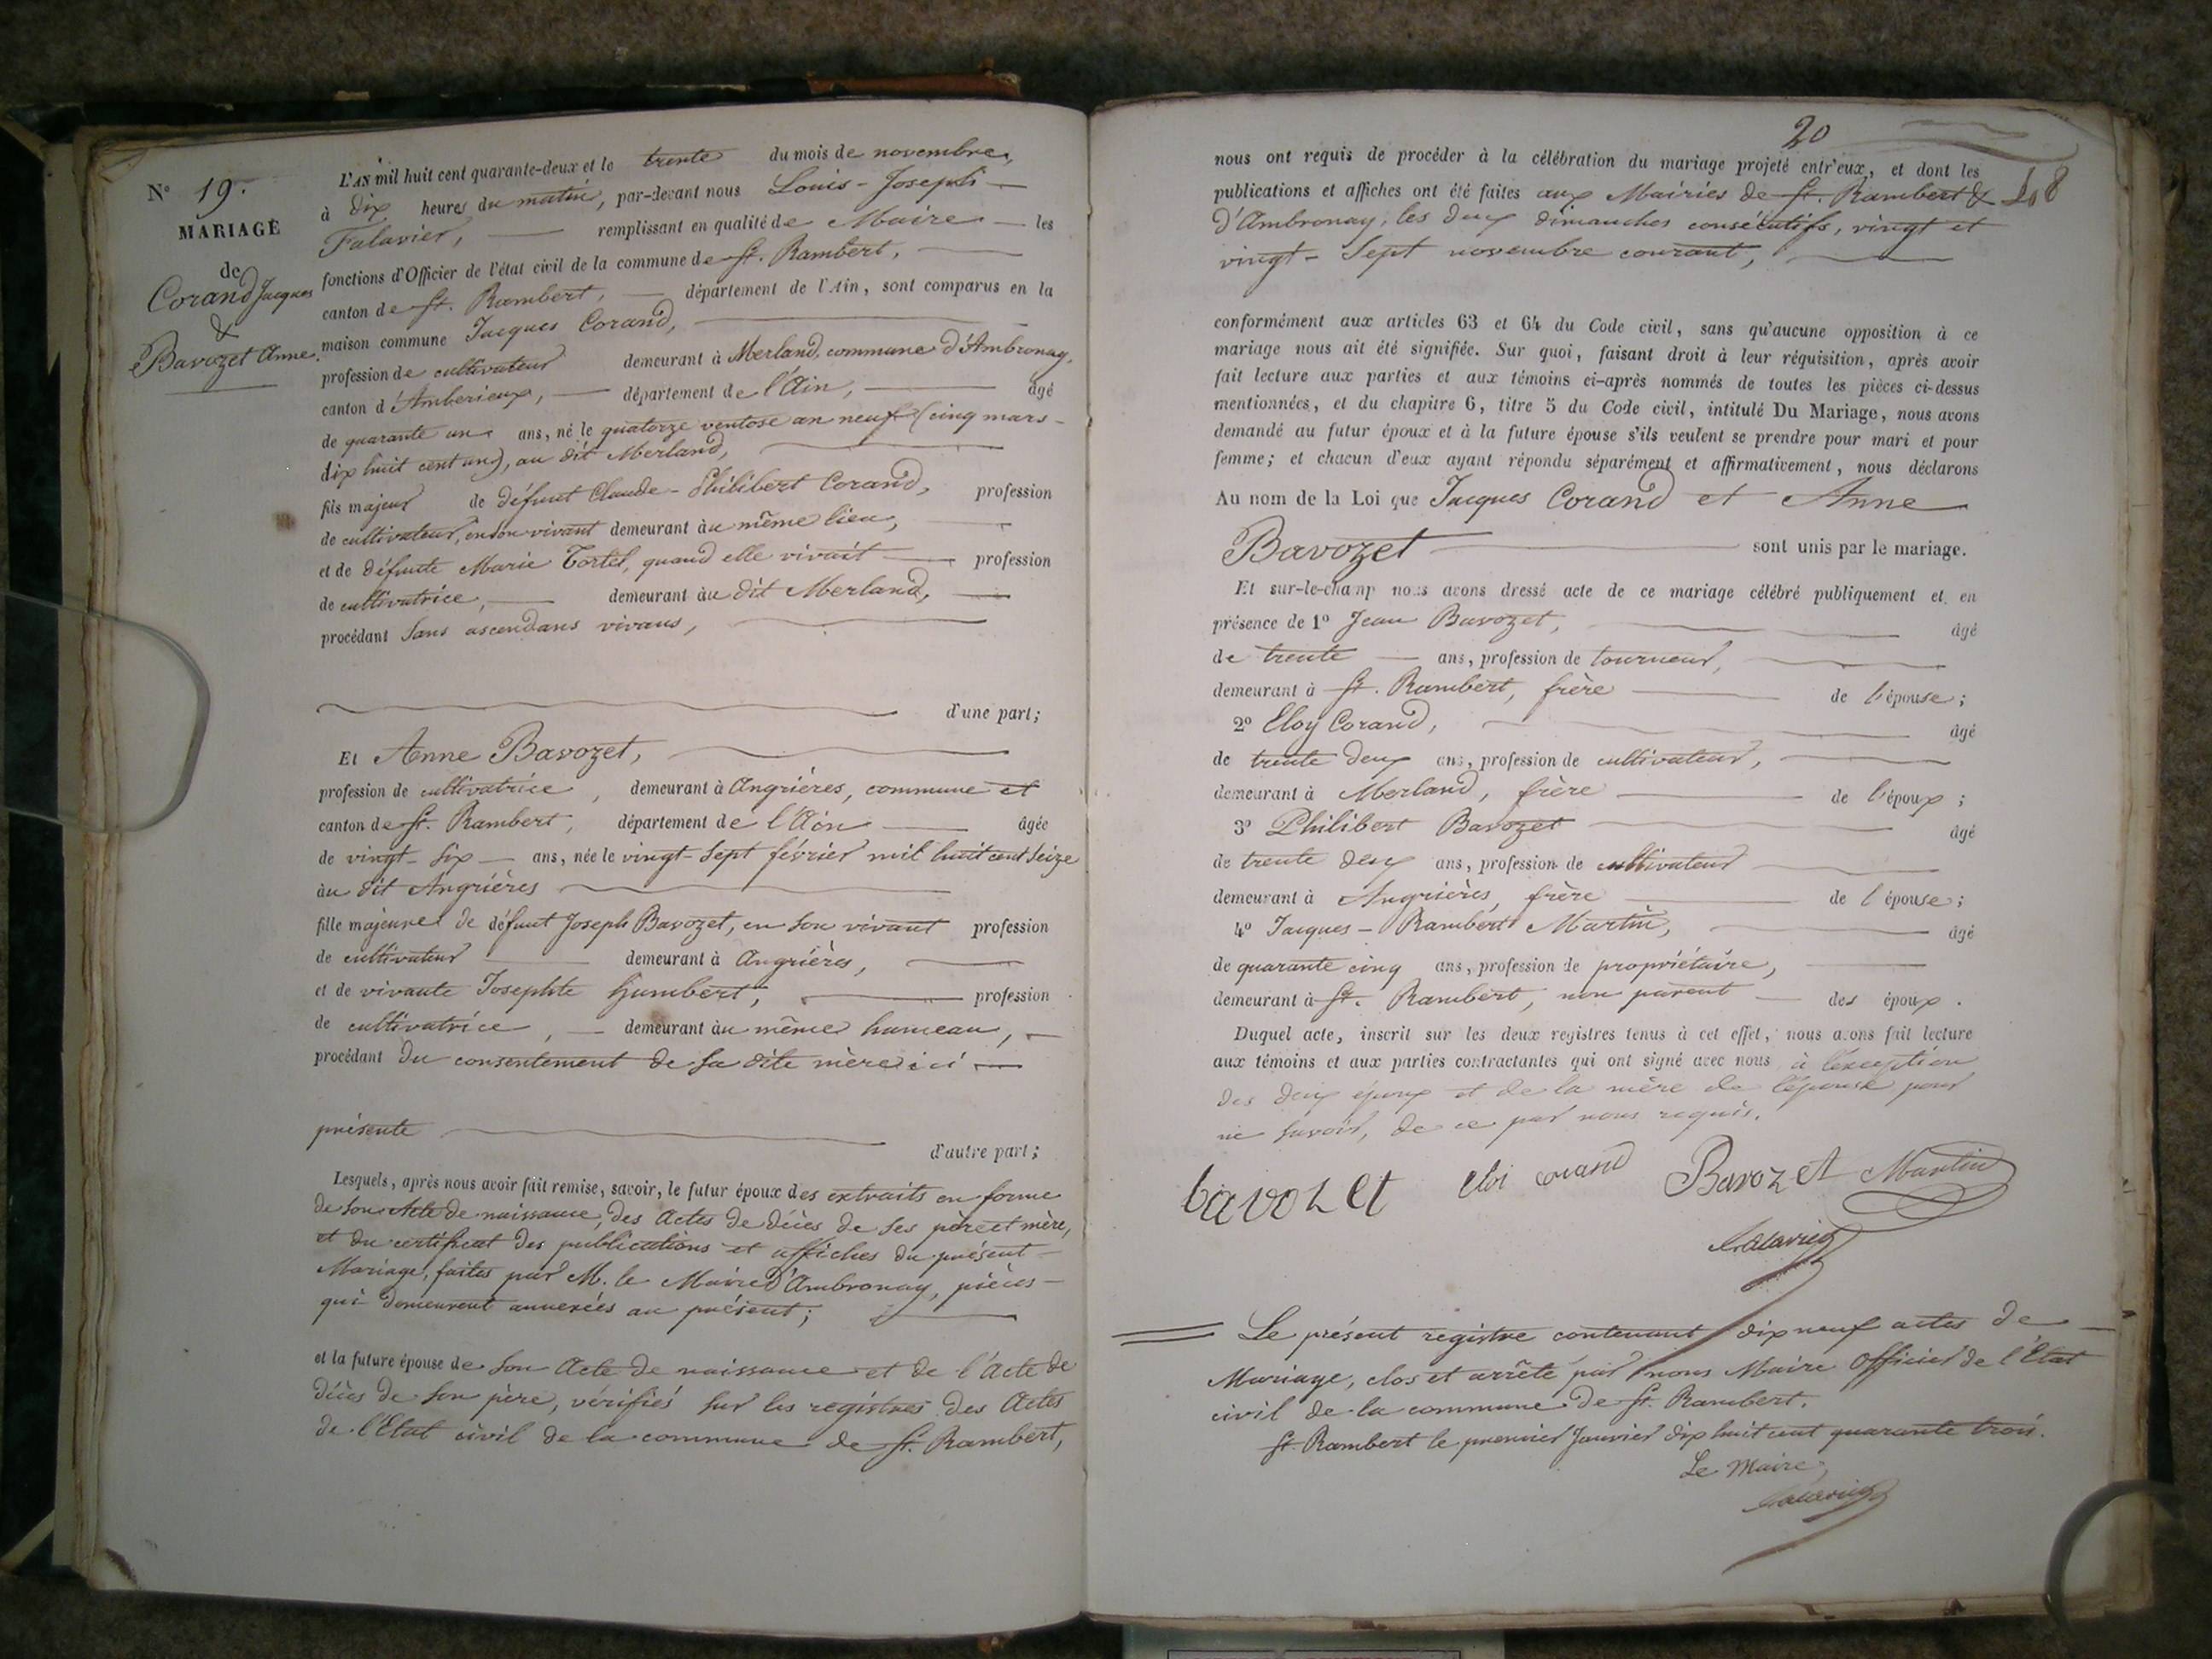 N° 19.
MARIAGE
de
Corand Jacques
&
Bavozet Anne.
L'AN mil huit cent quarante-deux et le trente du mois de novembre,
à dix heures du matin, par-devant nous Louis-Joseph
Falavier, remplissant en qualité de Maire les
fonctions d'Officier de l'état civil de la commune de St. Rambert,
canton de St. Rambert, département de l'Ain, sont comparus en la
maison commune Jacques Corand,
profession de cultivateur demeurant à Merland, commune d'Ambronay,
canton d'Amberieux, département de l'Ain, âgé
de quarante un ans, né le quatorze ventose an neuf (cinq mars
dix huit cent un), au dit Merland,
fils majeur de défunt Claude-Philibert Corand, profession
de cultivateur, en son vivant demeurant au même lieu,
et de défunte Marie Tortel, quand elle vivait profession
de cultivatrice, demeurant au dit Merland,
procédant sans ascendans vivans,
d'une part;
Et Anne Bavozet,
profession de cultivatrice, demeurant à Angrières, commune et
canton de St. Rambert, département de l'Ain âgée
de vingt-six ans, née le vingt-sept février mil huit cent seize
au dit Angrières
fille majeure de défunt Joseph Bavozet, en son vivant profession
de cultivateur demeurant à Angrières,
et de vivante Josephte humbert, profession
de cultivatrice, demeurant au même hameau,
procédant du consentement de sa dite mère ici
présente
d'autre part;
Lesquels, après nous avoir fait remise, savoir, le futur époux des extraits en forme
de son Acte de naissance, des Actes de décès de ses père et mère,
et du certificat des publications et affiches du présent
Mariage, faites par M. le Maire d'Ambronay, pièces
qui demeurent annexées au présent;
et la future épouse de son Acte de naissance et de l'Acte de
décès de son père, vérifiés sur les registres des Actes
de l'Etat civil de la commune de St. Rambert,
20
nous ont requis de procéder à la célébration du mariage projeté entr'eux, et dont les
publications et affiches ont été faites aux Mairies de St. Rambert &
d'Ambronay, les deux dimanches consécutifs, vingt et
vingt-sept novembre courant,
conformément aux articles 63 et 64 du Code civil, sans qu'aucune opposition à ce
mariage nous ait été signifiée. Sur quoi, faisant droit à leur réquisition, après avoir
fait lecture aux parties et aux témoins ci-après nommés de toutes les pièces ci-dessus
mentionnées, et du chapitre 6, titre 5 du Code civil, intitulé Du Mariage, nous avons
demandé au futur époux et à la future épouse s'ils veulent se prendre pour mari et pour
femme; et chacun d'eux ayant répondu séparément et affirmativement, nous déclarons
Au nom de la Loi que Jacques Corand et Anne
Bavozet sont unis par le mariage.
Et sur-le-champ nous avons dressé acte de ce mariage célébré publiquement et en
présence de 1° Jean Bavozet, âgé
de trente ans, profession de tourneur,
demeurant à St. Rambert, frère de l'épouse;
2° Eloy Corand, âgé
de trente deux ans, profession de cultivateur,
demeurant à Merland, frère de l'époux;
3° Philibert Bavozet âgé
de trente deux ans, profession de cultivateur
demeurant à Angrières, frère de l'épouse;
4° Jacques-Rambert Martin, âgé
de quarante cinq ans, profession de propriétaire,
demeurant à St. Rambert, non parent des époux.
Duquel acte, inscrit sur les deux registres tenus à cet effet, nous avons fait lecture
aux témoins et aux parties contractantes qui ont signé avec nous à l'exception
des deux époux et de la mère de l'épouse pour
ne savoir, de ce par nous requis.
bavozet eloi corand Bavozet Martin
Falavier
Le présent registre contenant dix neuf actes de
Mariage, clos et arrêté par nous Maire Officier de l'Etat
civil de la commune de St. Rambert.
St. Rambert le premier Janvier dix huit cent quarante trois.
Le Maire,
Falavier